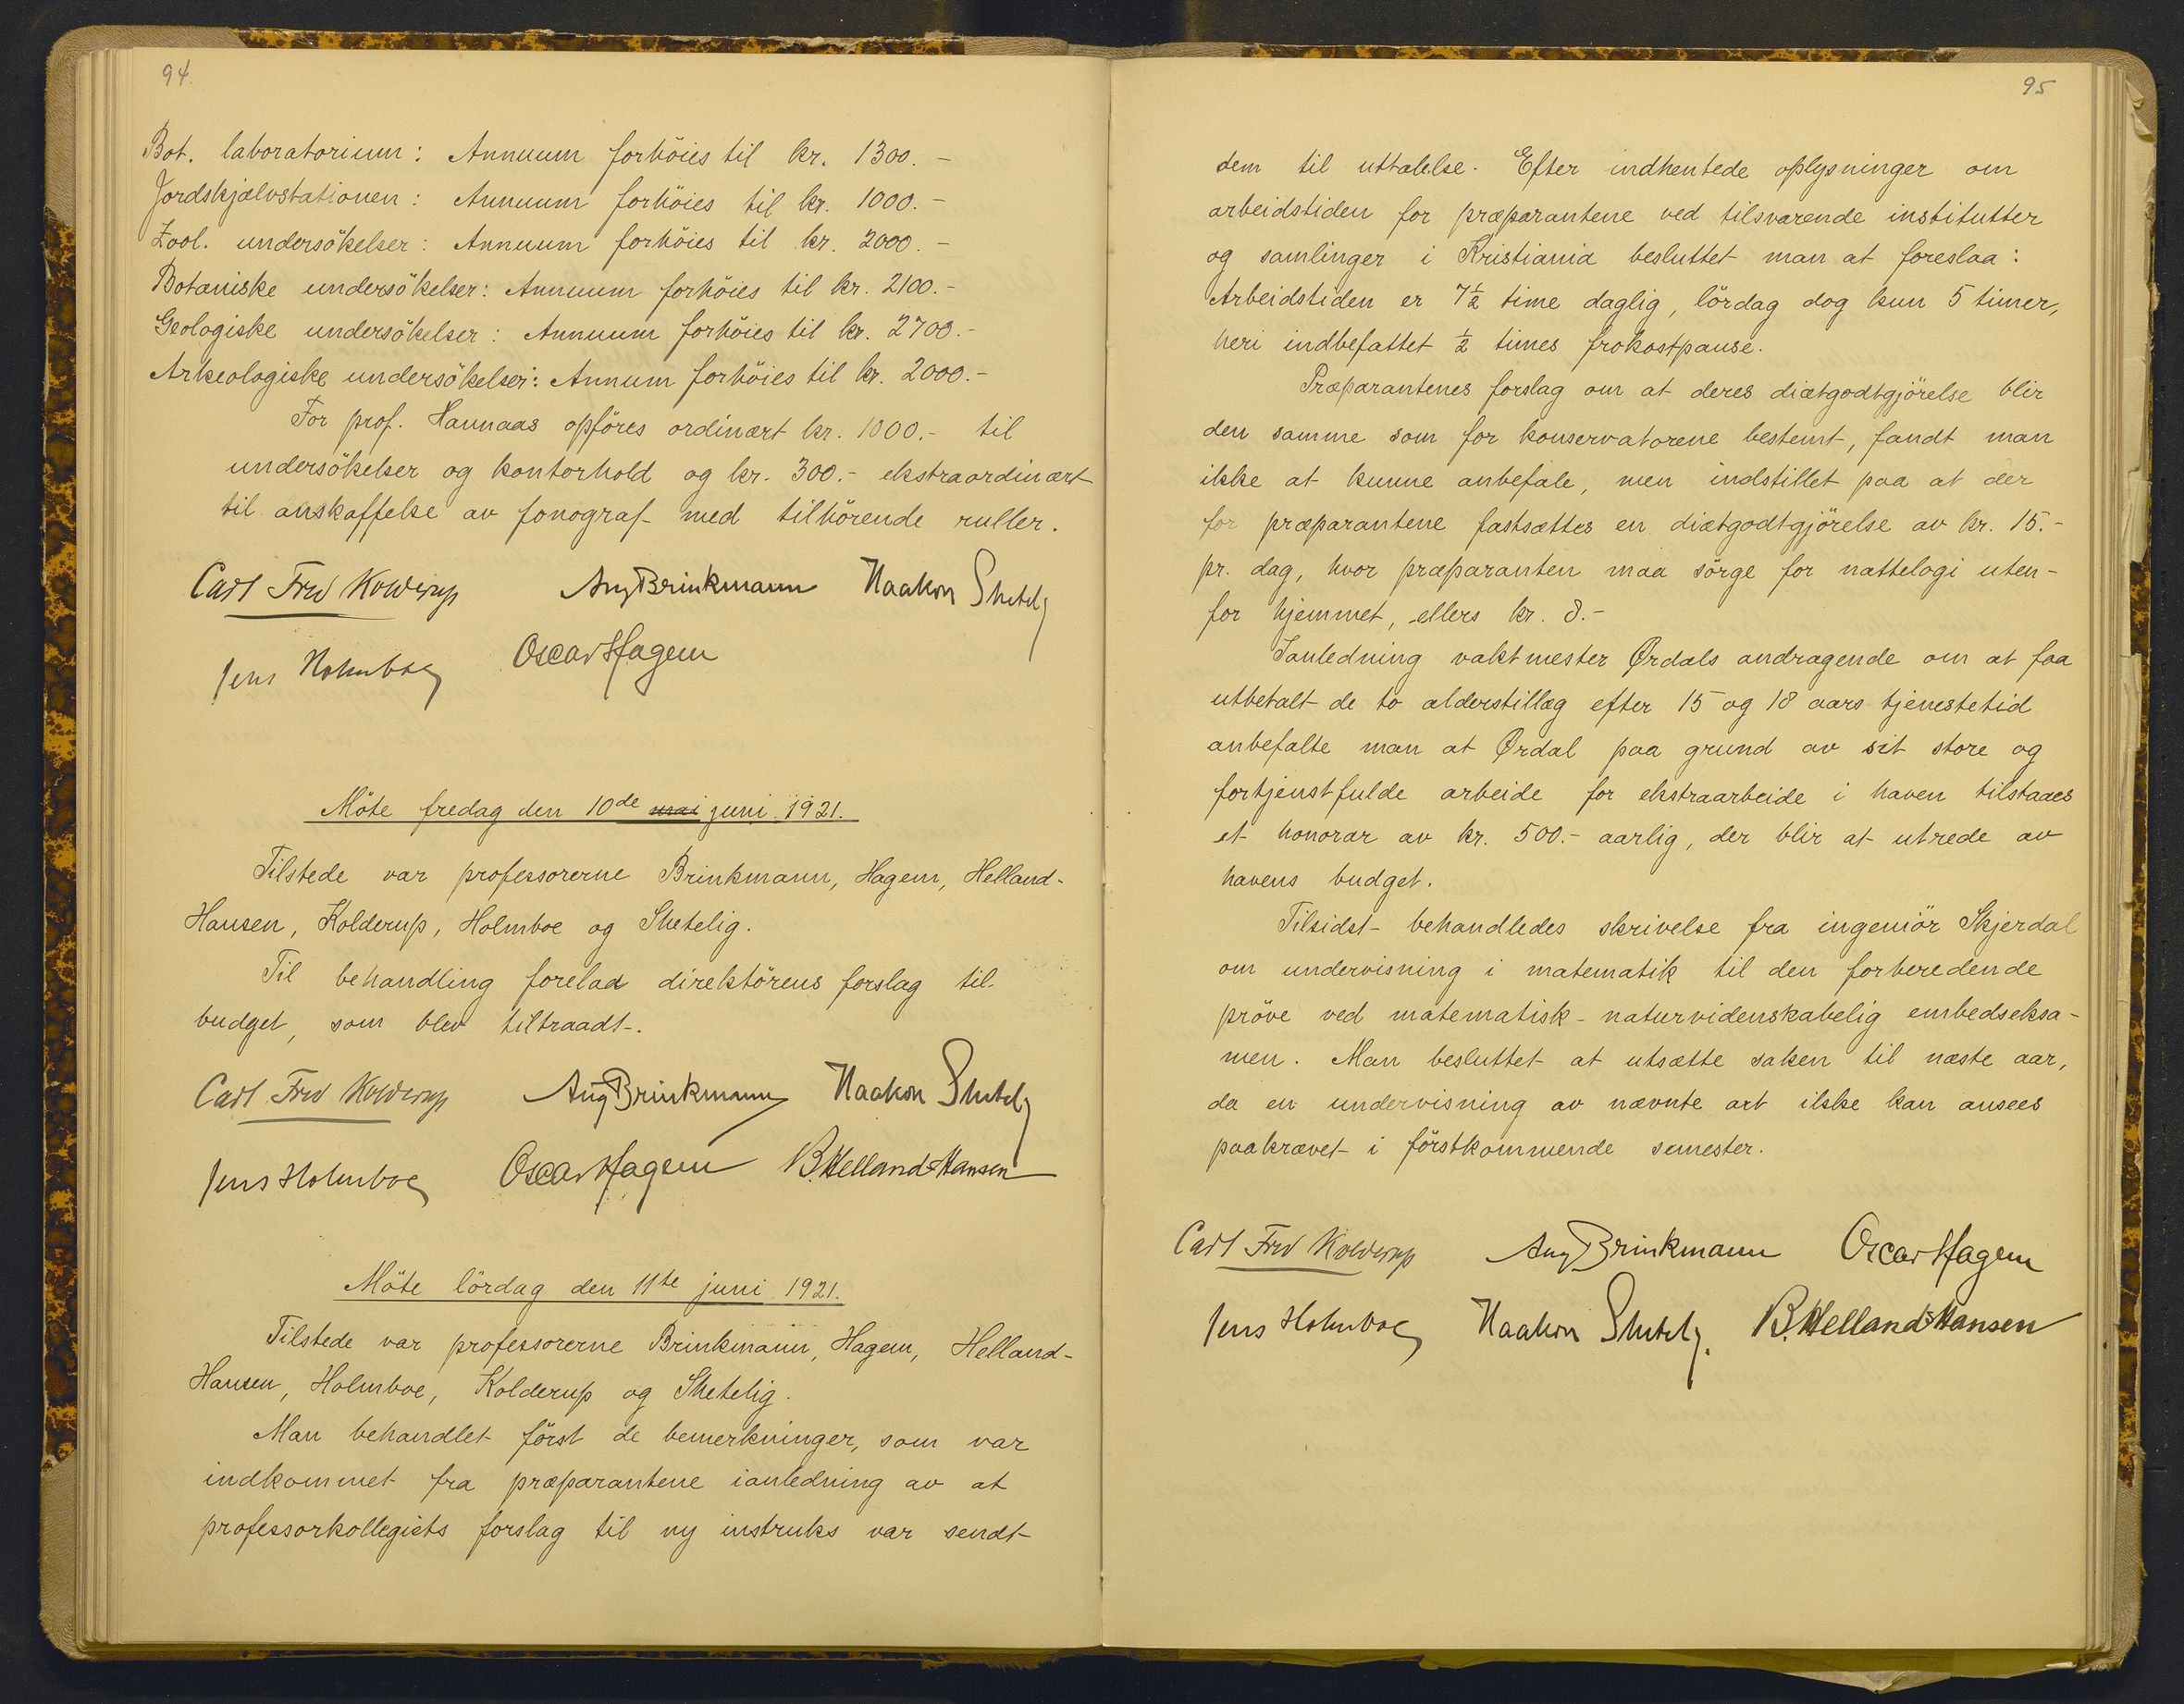 94.
Bot. laboratorium: Annuum forhöies til kr. 1300.-
Jordskjælvstationen: Annuum forhöies til kr. 1000.-
Zool. undersökelser: Annuum forhöies til kr. 2000.-
Botaniske undersökelser: Annuum forhöies til kr. 2100.-
Geologiske undersökelser: Annuum forhöies til kr. 2700.-
Arkeologiske undersökelser: Annum forhöies til kr. 2000.-
For prof. Hannaas opföres ordinært kr. 1000.- til
undersökelser og kontorhold og kr. 300.- ekstraordinært
til anskaffelse av fonograf med tilhörende ruller.
Carl Fred Kolderup Aug Brinkmann Haakon Shetelig
Jens Holmboe Oscar Hagem
Möte fredag den 10de mai juni 1921.
Tilstede var professorerne Brinkmann, Hagem, Helland-
Hansen, Kolderup, Holmboe og Shetelig.
Til behandling forelaa direktörens forslag til
budget, som blev tiltraadt.
Carl Fred Kolderup Aug Brinkmann Haakon Shetelig
Jens Holmboe Oscar Hagem B. Helland-Hansen
Möte lördag den 11te juni 1921.
Tilstede var professorerne Brinkmann, Hagem, Helland-
Hansen, Holmboe, Kolderup og Shetelig.
Man behandlet först de bemerkninger, som var
indkommet fra præparantene ianledning av at
professorkollegiets forslag til ny instruks var sendt
95
dem til uttalelse. Efter indhentede oplysninger om
arbeidstiden for præparantene ved tilsvarende institutter
og samlinger i Kristiania besluttet man at foreslaa:
Arbeidstiden er 7½ time daglig, lördag dog kun 5 timer,
heri indbefattet ½ times frokostpause.
Præparantenes forslag om at deres diætgodtgjörelse blir
den samme som for konservatorene bestemt, fandt man
ikke at kunne anbefale, men indstillet paa at der
for præparantene fastsættes en diætgodtgjörelse av kr. 15.-
pr. dag, hvor præparanten maa sörge for nattelogi uten-
for hjemmet, ellers kr. 8.-
Ianledning vaktmester Ørdals andragende om at faa
utbetalt de to alderstillæg efter 15 og 18 aars tjenestetid
anbefalte man at Ørdal paa grund av sit store og
fortjenstfulde arbeide for ekstraarbeide i haven tilstaaes
et honorar av kr. 500.- aarlig, der blir at utrede av
havens budget.
Tilsidst behandledes skrivelse fra ingeniör Skjerdal
om undervisning i matematik til den forberedende
pröve ved matematisk-naturvidenskabelig embedseksa-
men. Man besluttet at utsætte saken til næste aar,
da en undervisning av nævnte art ikke kan ansees
paakrævet i förstkommende semester.
Carl Fred Kolderup Aug Brinkmann Oscar Hagem
Jens Holmboe Haakon Shetelig. B. Helland-Hansen